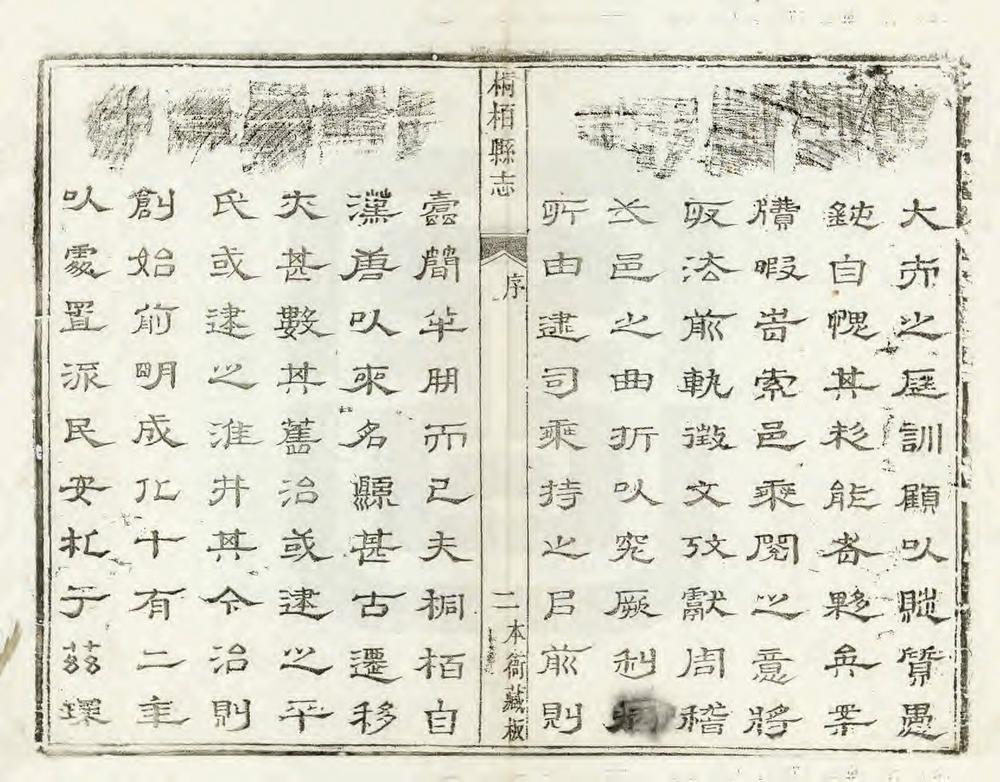 大之庭訓顧以質愚
鈍自愧其材能者夥矣案
牘暇嘗索邑乘閱之意將
取法前軌徵文攷獻周稽
邑之曲折以究厥利病
所由逮司乘持之㠯前則
桐栢縣志
序
二
本衙藏板
蠹簡半朋而已夫桐栢自
漢唐以來名縣甚古遷移
亦甚數其舊治或逮之平
氏或逮之淮井其今治則
創始前明成化十有二年
以處置流民安札于茲環